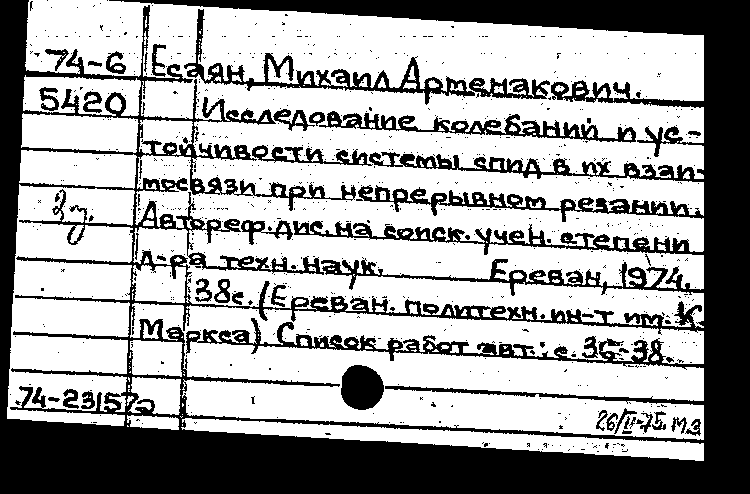 74-6 Есаян, Михаил Артенакович.
5420 Исследование колебаний и ус-
тойчивости системы спид в их взаи-
мосвязи при непрерывном резании.
2э. Автореф. дис. на соиск. учен. степени
д-ра техн. наук. Ереван, 1974.
38с. (Ереван. политехн. ин-т им. К.
Маркса). Список работ авт.: с. 36-38.
74-23157а
26/II-75. М.З